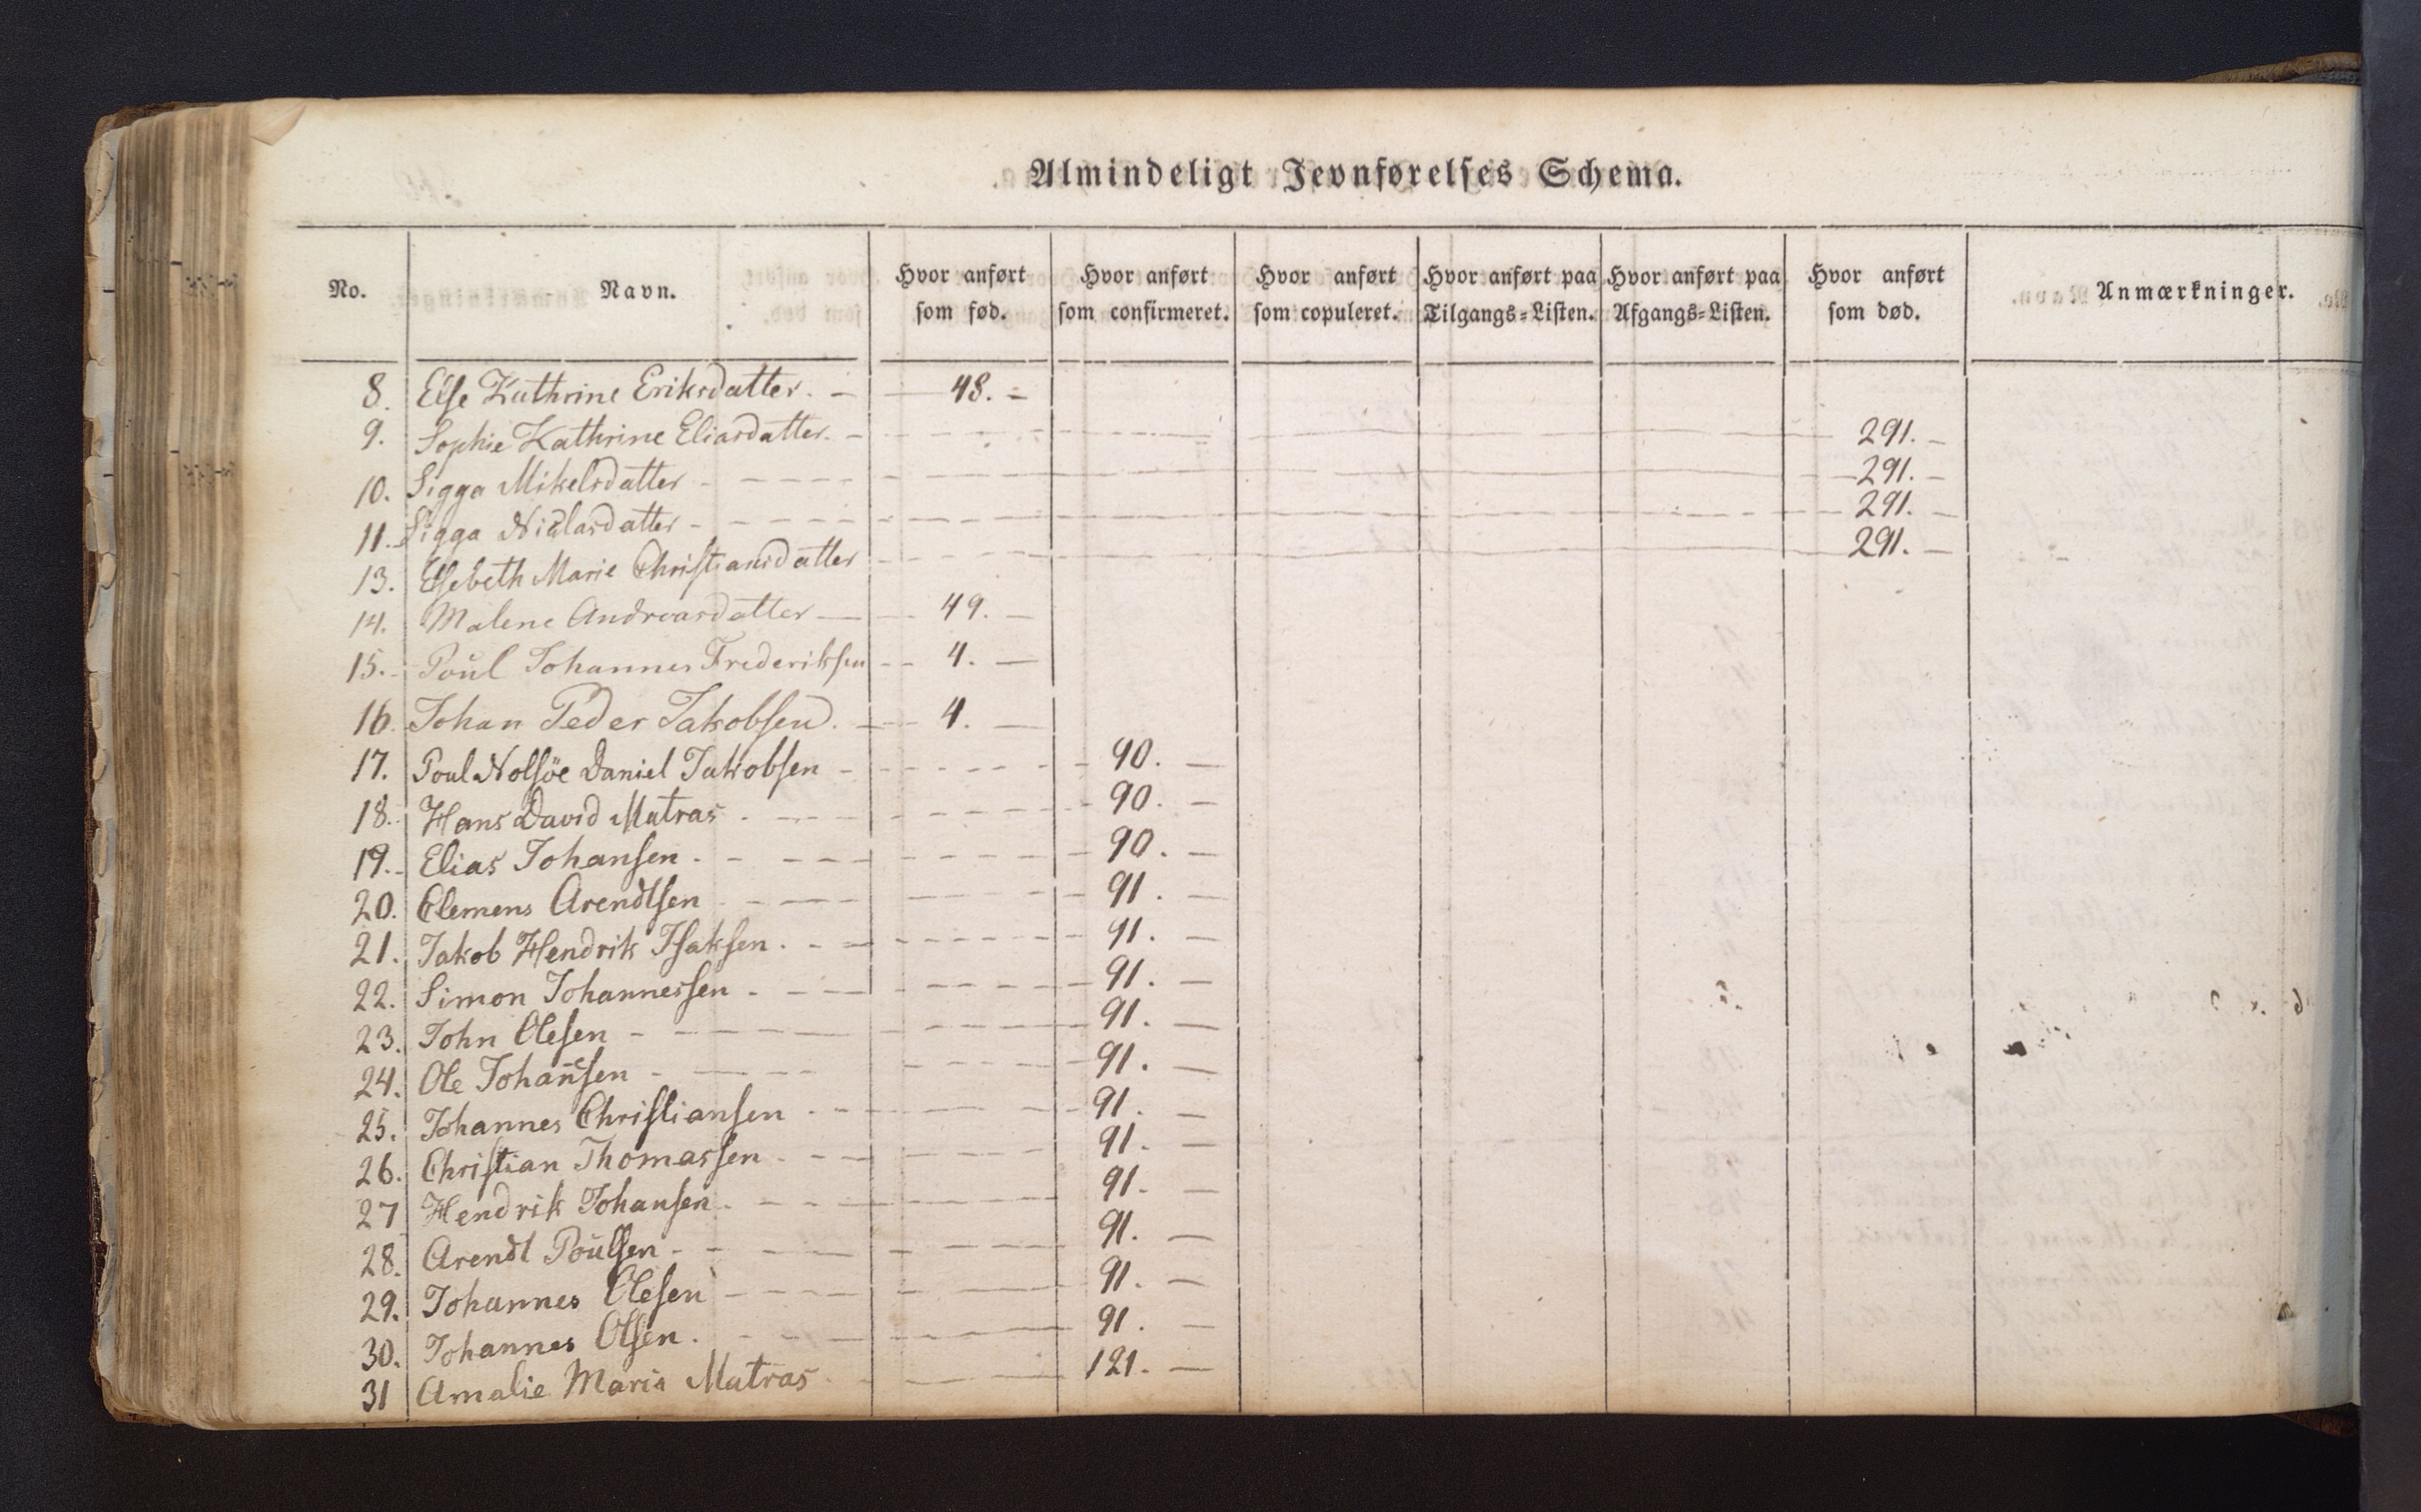 Almindeligt Jevnførelses Schema.
No. Navn. Hvor anført som fød. Hvor anført som confirmeret. Hvor anført som copuleret. Hvor anført paa Tilgangs-Listen. Hvor anført paa Afgangs-Listen. Hvor anført som død. Anmærkninger.
8. Else Kathrine Eriksdatter. 48.
9. Sophie Kathrine Eliasdatter. 291.
10. Sigga Mikelsdatter 291.
11. Sigga Niclasdatter 291.
13. Elsebeth Marie Christiansdatter 291.
14. Malene Andreasdatter 49.
15. Poul Johannes Frederiksen 4.
16. Johan Peder Jakobsen. 4.
17. Poul Nolsöe Daniel Jakobsen 90.
18. Hans David Matras 90.
19. Elias Johansen. 90.
20. Clemens Arendtsen 91.
21. Jakob Hendrik Isaksen. 91.
22. Simon Johannessen 91.
23. John Olesen 91.
24. Ole Johanesen 91.
25. Johannes Christiansen 91.
26. Christian Thomassen 91.
27 Hendrik Johansen 91.
28. Arendt Poulsen 91.
29. Johannes Olesen 91.
30. Johannes Olsen. 91.
31 Amalie Maria Matras 121.